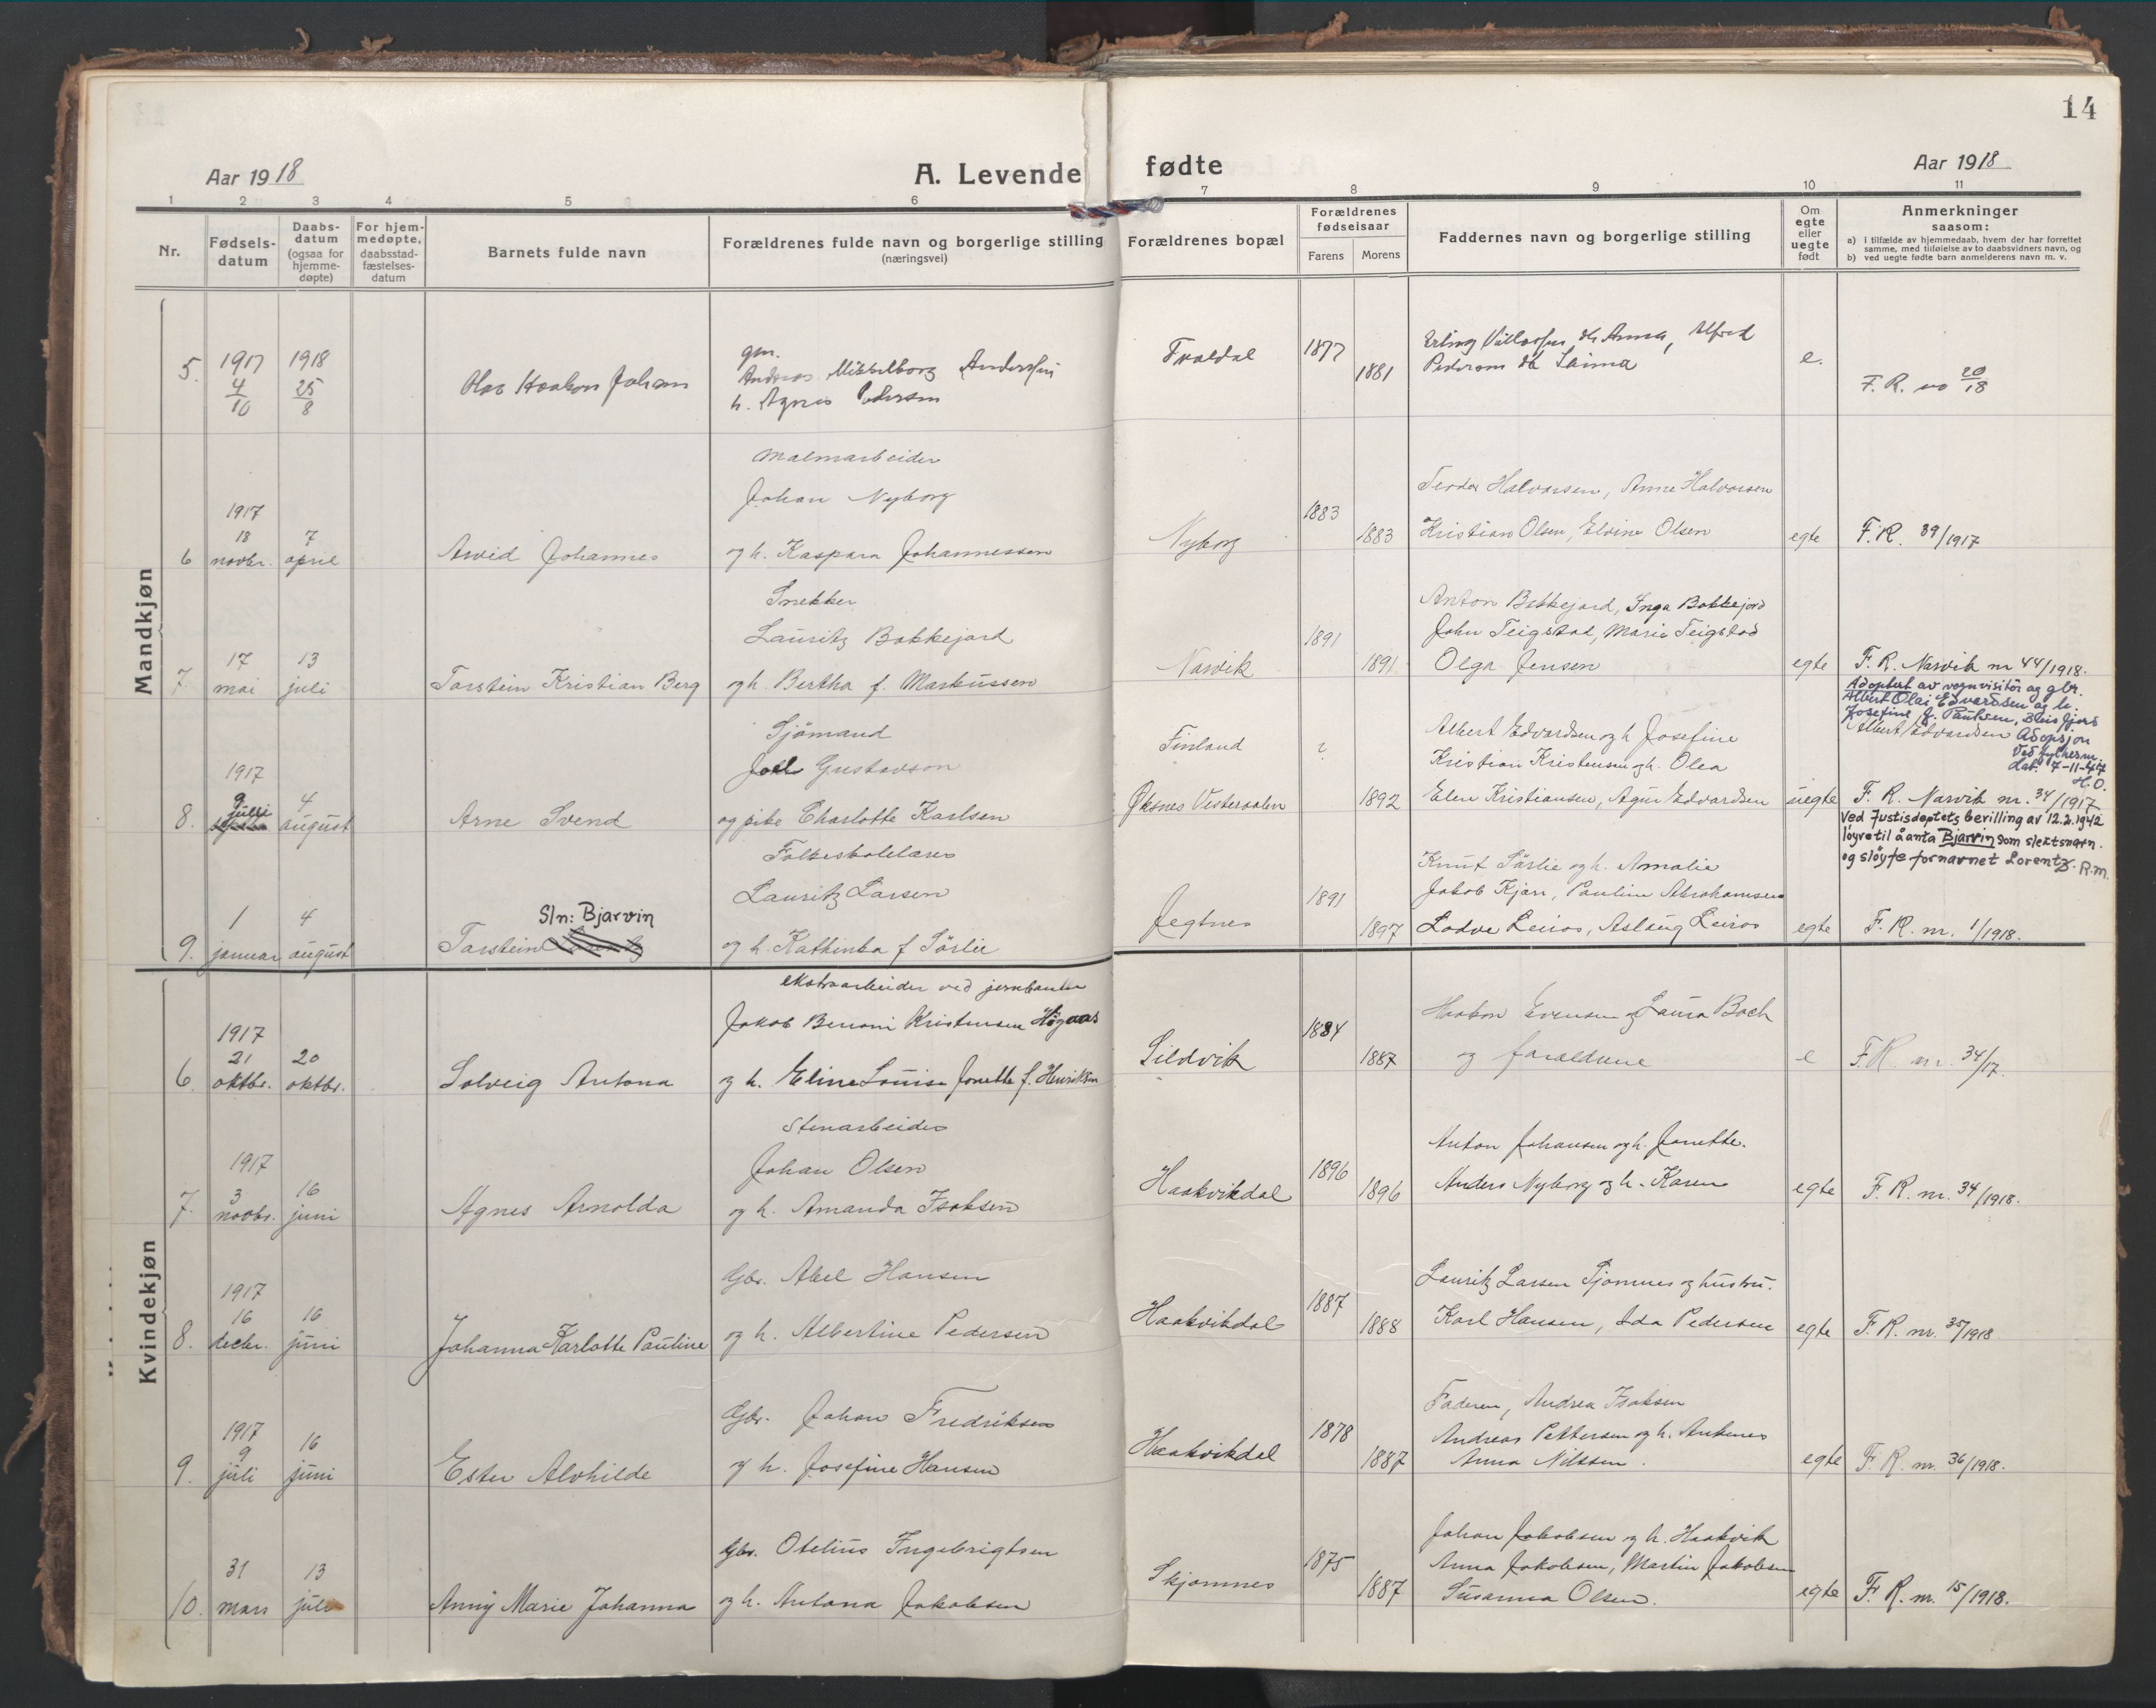 14
Aar 1918
A. Levende fødte
Aar 1918
1 2 3 4 5 6 7 8 9 10 11
Nr.
Fødsels-
datum
Daabs-
datum
(ogsaa for
hjemme-
døpte)
For hjem-
medøpte,
daabsstad-
fæstelses-
datum
Barnets fulde navn
Forældrenes fulde navn og borgerlige stilling
(næringsvei)
Forældrenes bopæl
Forældrenes
fødselsaar
Farens Morens
Faddernes navn og borgerlige stilling
Om
egte
eller
uegte
født
Anmerkninger
saasom:
a) i tilfælde av hjemmedaab, hvem der har forrettet
samme, med tilføielse av to daabsvidners navn, og
b) ved uegte fødte barn anmelderens navn m. v.
Mandkjøn
5. 1917 4/10
1918 25/8
Olav Haakon Johan
gm.
Andreas Mikkelborg Anderssen
h. Agnes Pedersen
1877
1881
Anna, Alfred
Pedersen
e.
F. R. no 20/18
6 1917
18 novbr.
7 april
Arvid Johannes
Malmarbeider
Johan Nyborg
og h. Kaspara Johannessen
Nyborg
1883
1883
Halvorsen, Anne Halvorsen
Kristian Olsen, Elvine Olsen
egte
F. R. 39/1917
7. 17 mai
13 juli
Torstein Kristian Berg
Snekker
Lauritz Bakkejord
og h. Bertha f. Markussen
Narvik
1891
1891
Anton Bakkejord, Inga Bakkejord
John Teigstad, Marie Teigstad
Olga Jensen
egte
F. R. Narvik nr 44/1918.
8. 1917
9 juli
4 august
Arne Svend
Sjömand
Joel Gustavson
og pike Charlotte Karlsen
Finland
Øksnes Vesteraalen
?
1892
Albert Edvardsen og h Josefine
Kristian Kristensen og h. Olea
Elen Kristiansen, Edvardsen
uegte
Adoptert av vognvisitör og gbr.
Albert Olai Edvardsen og h.
Josefine f. Paulsen,
Albert Edvardsen Adopsjon
ved
dat. 7-11-47
H.O.
F. R. Narvik nr. 34/1917
9. 1 januar
4 august
Sln: Bjarvin
Torstein
Folkeskolelærer
Lauritz Larsen
og h. Kathinka f Sörlie
Jegtnes
1891
1897
Knut Sörlie og h. Amalie
Jakob Kjær, Pauline Abrahamsen
Lodve Leiros, Aslaug Leiros
egte
Ved Justisdeptets bevilling av 12.2.1942
löyve til å anta Bjarvin som slektsnavn
og slöyfe fornavnet Lorentz. R.M.
F. R. nr. 1/1918.
Kvindekjøn
6. 1917
21 oktbr.
20 oktbr.
Solveig Antona
ekstraarbeider ved jernbanen
Jakob Benoni Kristensen Högaas
og h. Eline Louise Jonette f. Henriksen
Sildvik
1884
1887
Haakon Evensen og Laura Bach
og forældrene
e
F. R. nr. 34/17.
7. 1917
3 novbr.
16 juni
Agnes Arnolda
Stenarbeider
Johan Olsen
og h. Amanda Isaksen
Haakvikdal
1896
1896
Anton Johansen og h. Jonette.
Anders Nyborg og h. Karen
egte
F. R. nr. 34/1918.
8. 1917
16 decbr.
16 juni
Johanna Karlotte Pauline
Gbr. Abel Hansen
og h. Albertine Pedersen
Haakvikdal
1887
1888
Lauritz Larsen Tjomnes og hustru.
Karl Hansen, Ida Pedersen
egte
F. R. nr. 35/1918
9. 1917
9 juli
16 juni
Ester Alvhilde
Gbr. Johan Fredriksen
og h. Josefine Hansen
Haakvikdal
1878
1887
Faderen, Andrea Isaksen
Andreas Pettersen og h.
Anna Nilssen.
egte
F. R. nr. 36/1918.
10. 31 mars
13 juli
Anny Marie Johanna
Gbr. Otelius Ingebrigtsen
og h. Antona Jakobsen
Skjomnes
1875
1887
Johan Jakobsen og h. Haakvik
Anna Jakobsen, Martin Jakobsen
Susanna Olsen.
egte
F. R. nr. 15/1918.